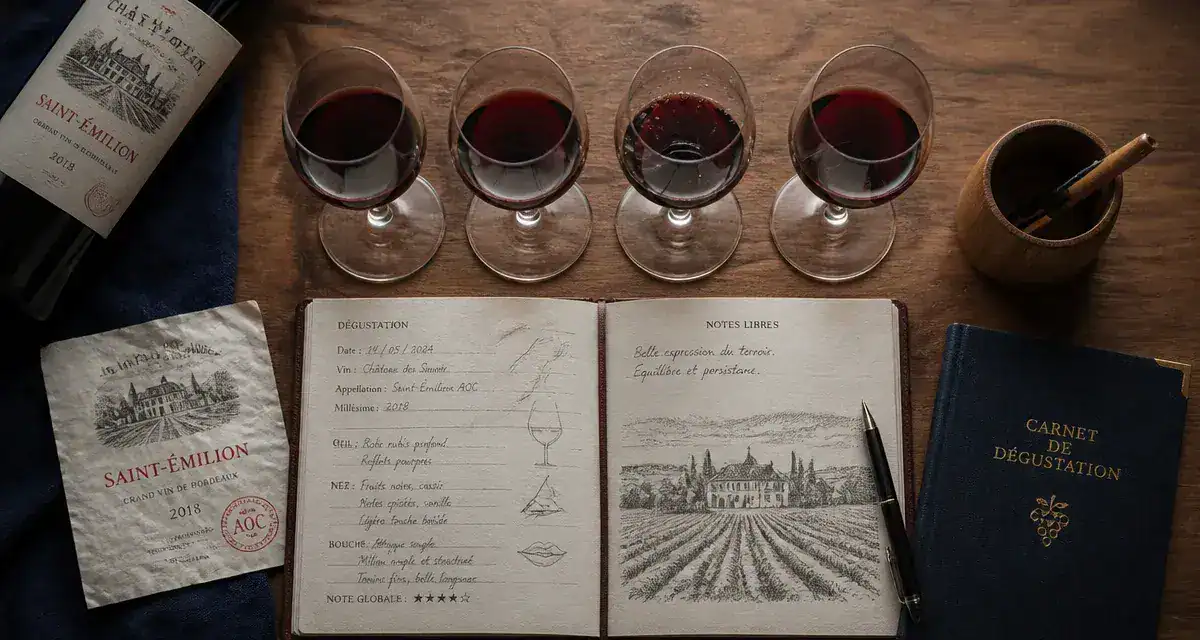 SAINT-ÉMILION
2018
SAINT-ÉMILION
GRAND VIN DE BORDEAUX
2018
AOC
DÉGUSTATION
Date : 14 / 05 / 2024
Vin : Château des
Appellation : Saint-Émilion AOC
Millésime : 2018
Robe rubis profond
Reflets pourpres
NEZ : Fruits noirs, cassis
épicées, vanille
Légère touche boisée
BOUCHE : Attaque souple
ample et structuré
fins, belle longueur
NOTE GLOBALE : ★★★★☆
NOTES LIBRES
Belle expression du terroir.
Équilibre et
CARNET
DE
DÉGUSTATION